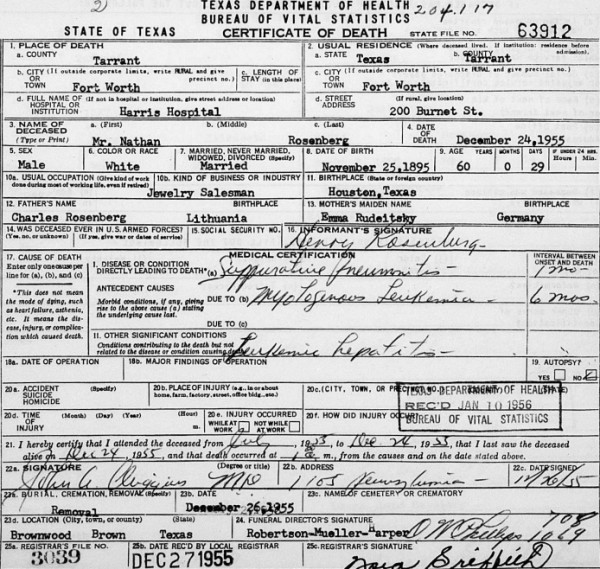 2
TEXAS DEPARTMENT OF HEALTH
BUREAU OF VITAL STATISTICS
204.117
STATE OF TEXAS CERTIFICATE OF DEATH STATE FILE NO. 63912
1. PLACE OF DEATH
a. COUNTY
Tarrant
2. USUAL RESIDENCE (Where deceased lived. If institution: residence before admission).
a. STATE
Texas
b. COUNTY
Tarrant
b. CITY (If outside corporate limits, write RURAL and give precinct no.)
OR
TOWN
Fort Worth
c. LENGTH OF STAY (in this place)
c. CITY (If outside corporate limits, write RURAL and give precinct no.)
OR
TOWN
Fort Worth
d. FULL NAME OF (If not in hospital or institution, give street address or location)
HOSPITAL OR
INSTITUTION
Harris Hospital
d. STREET (If rural, give location)
ADDRESS
200 Burnet St.
3. NAME OF DECEASED
(Type or Print)
a. (First)
Mr. Nathan
b. (Middle)
c. (Last)
Rosenberg
4. DATE OF DEATH
December 24,1955
5. SEX
Male
6. COLOR OR RACE
White
7. MARRIED, NEVER MARRIED, WIDOWED, DIVORCED (Specify)
Married
8. DATE OF BIRTH
November 25,1895
9. AGE YEARS MONTHS DAYS IF UNDER 24 HRS. Hours Min.
60 0 29
10a. USUAL OCCUPATION (Give kind of work done during most of working life, even if retired)
10b. KIND OF BUSINESS OR INDUSTRY
Jewelry Salesman
11. BIRTHPLACE (State or foreign country)
Houston,Texas
12. FATHER'S NAME BIRTHPLACE
Charles Rosenberg Lithuania
13. MOTHER'S MAIDEN NAME BIRTHPLACE
Emma Rudeitsky Germany
14. WAS DECEASED EVER IN U.S. ARMED FORCES?
(Yes, no, or unknown) (If yes, give war or dates of service)
15. SOCIAL SECURITY NO.
16. INFORMANT'S SIGNATURE
Henry Rosenberg
17. CAUSE OF DEATH
Enter only one cause per line for (a), (b), and (c)
*This does not mean the mode of dying, such as heart failure, asthenia, etc. It means the disease, injury, or complication which caused death.
MEDICAL CERTIFICATION
INTERVAL BETWEEN ONSET AND DEATH
I. DISEASE OR CONDITION DIRECTLY LEADING TO DEATH* (a) Suppurative Pneumonitis - 1 mo -
ANTECEDENT CAUSES
Morbid conditions, if any, giving rise to the above cause (a) stating the underlying cause last.
DUE TO (b) Myelogenous Leukemia - 6 mos.
DUE TO (c)
11. OTHER SIGNIFICANT CONDITIONS
Conditions contributing to the death but not related to the disease or condition causing death.
Leukemic hepatitis -
18a. DATE OF OPERATION
18b. MAJOR FINDINGS OF OPERATION
19. AUTOPSY?
YES NO
20a. ACCIDENT (Specify)
SUICIDE
HOMICIDE
20b. PLACE OF INJURY (e.g., in or about home, farm, factory, street, office bldg., etc.)
20c. (CITY, TOWN, OR PRECINCT NO.)
TEXAS DEPARTMENT OF HEALTH
REC'D JAN 10 1956
BUREAU OF VITAL STATISTICS
20d. TIME OF INJURY (Month) (Day) (Year) (Hour) m.
20e. INJURY OCCURRED
WHILE AT WORK NOT WHILE AT WORK
20f. HOW DID INJURY OCCUR?
21. I hereby certify that I attended the deceased from July, 1955, to Dec 24, 1955, that I last saw the deceased
alive on Dec 24, 1955, and that death occurred at m., from the causes and on the date stated above.
22a. SIGNATURE (Degree or title)
John A. MD
22b. ADDRESS
1105 Pennsylvania
22c. DATE SIGNED
12/26/55
23a. BURIAL, CREMATION, REMOVAL (Specify)
Removal
23b. DATE
December 26,1955
23c. NAME OF CEMETERY OR CREMATORY
23d. LOCATION (City, town, or county) (State)
Brownwood Brown Texas
24. FUNERAL DIRECTOR'S SIGNATURE
Robertson-Mueller-Harper O W Phillips
708
1069
25a. REGISTRAR'S FILE NO.
3039
25b. DATE REC'D BY LOCAL REGISTRAR
DEC 27 1955
25c. REGISTRAR'S SIGNATURE